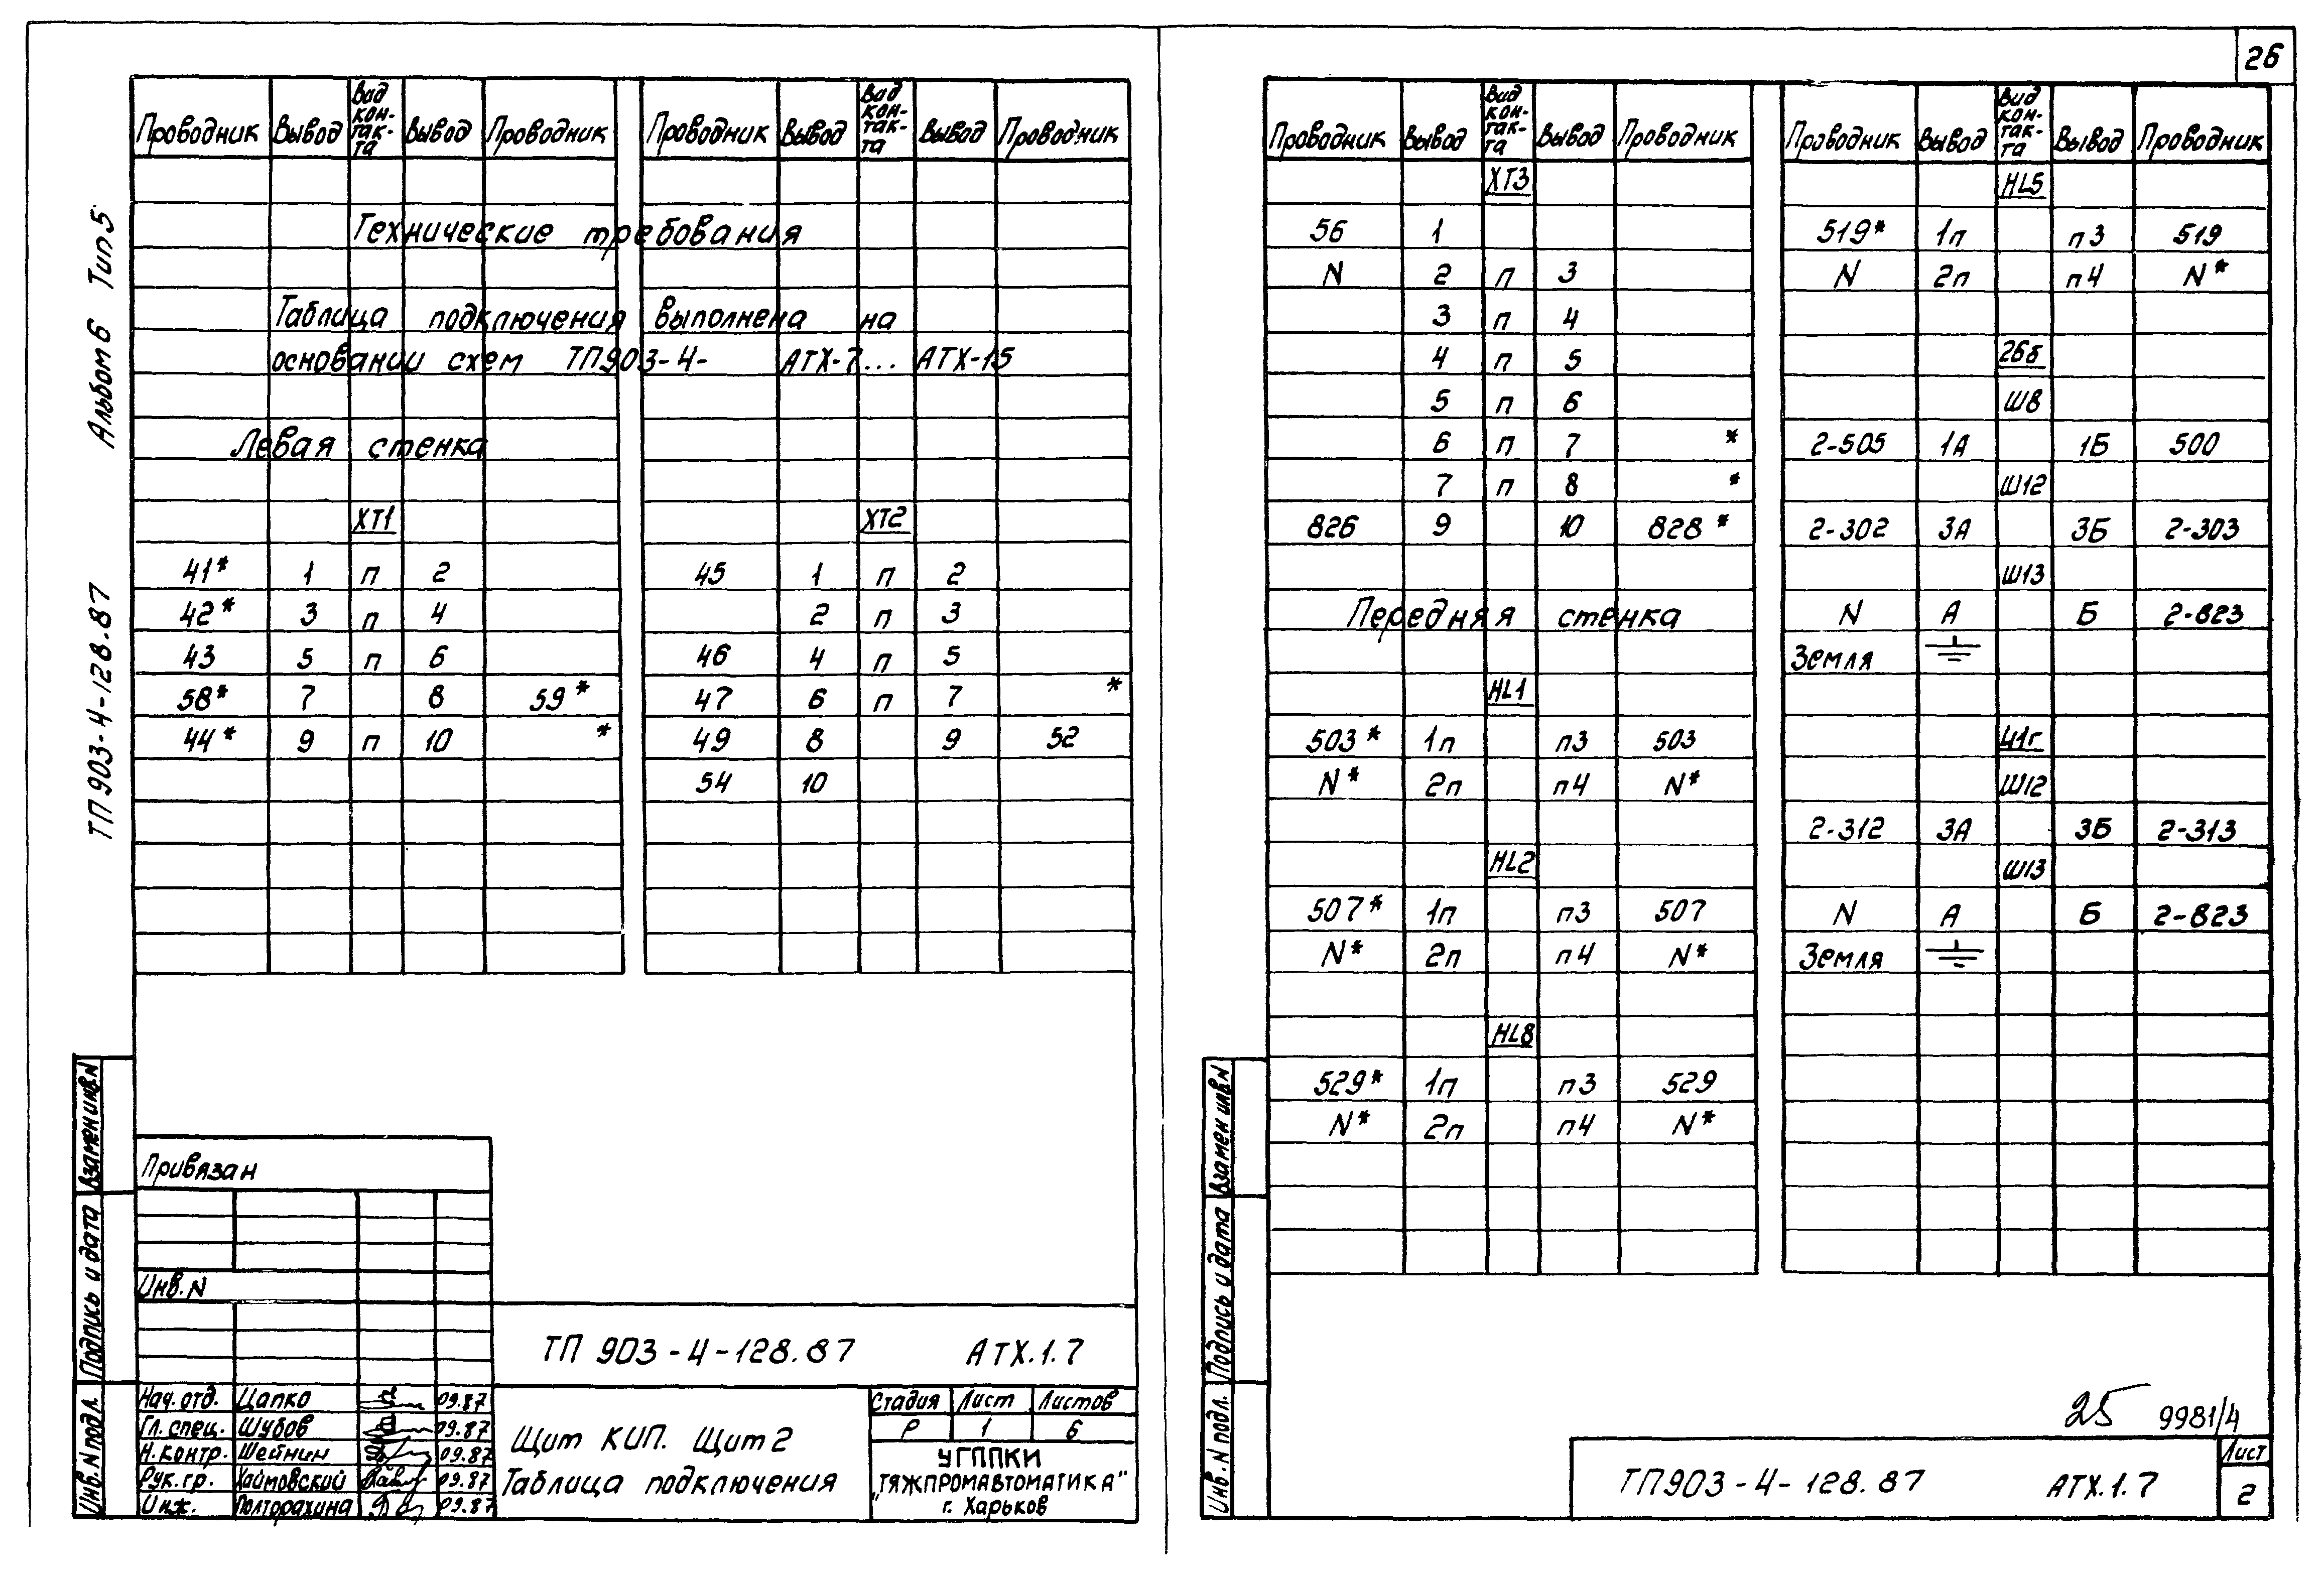 26
Альбом 6 Тип 5
ТП 903-4-128.87
Проводник Вывод Вид кон-так-та Вывод Проводник Проводник Вывод Вид кон-так-та Вывод Проводник
Технические требования
Таблица подключения выполнена на
основании схем ТП903-4- АТХ-7... АТХ-15
Левая стенка
ХТ1
41* 1 п 2
42* 3 п 4
43 5 п 6
58* 7 8 59*
44* 9 п 10 *
ХТ2
45 1 п 2
2 п 3
46 4 п 5
47 6 п 7 *
49 8 9 52
54 10
Взамен инв.N
Подпись и дата
Инв. N подл.
Привязан
Инв. N
ТП 903-4-128.87 АТХ.1.7
Нач. отд. Цапко 09.87
Гл. спец. Шубов 09.87
Н. контр. Шейнин 09.87
Рук. гр. Хаймовский 09.87
Инж. Полторахина 09.87
Щит КИП. Щит 2
Таблица подключения
Стадия Лист Листов
Р 1 6
УГППКИ
"ТЯЖПРОМАВТОМАТИКА"
г. Харьков
Проводник Вывод Вид кон-так-та Вывод Проводник Проводник Вывод Вид кон-так-та Вывод Проводник
ХТ3
56 1
N 2 п 3
3 п 4
4 п 5
5 п 6
6 п 7 *
7 п 8 *
826 9 10 828*
Передняя стенка
HL1
503* 1п п3 503
N* 2п п4 N*
HL2
507* 1п п3 507
N* 2п п4 N*
HL8
529* 1п п3 529
N* 2п п4 N*
HL5
519* 1п п3 519
N 2п п4 N*
26б
Ш8
2-505 1А 1Б 500
Ш12
2-302 3А 3Б 2-303
Ш13
N А Б 2-823
Земля
41г
Ш12
2-312 3А 3Б 2-313
Ш13
N А Б 2-823
Земля
Взамен инв.N
Подпись и дата
Инв. N подл.
25 9981/4
ТП903-4-128.87 АТХ.1.7
Лист
2